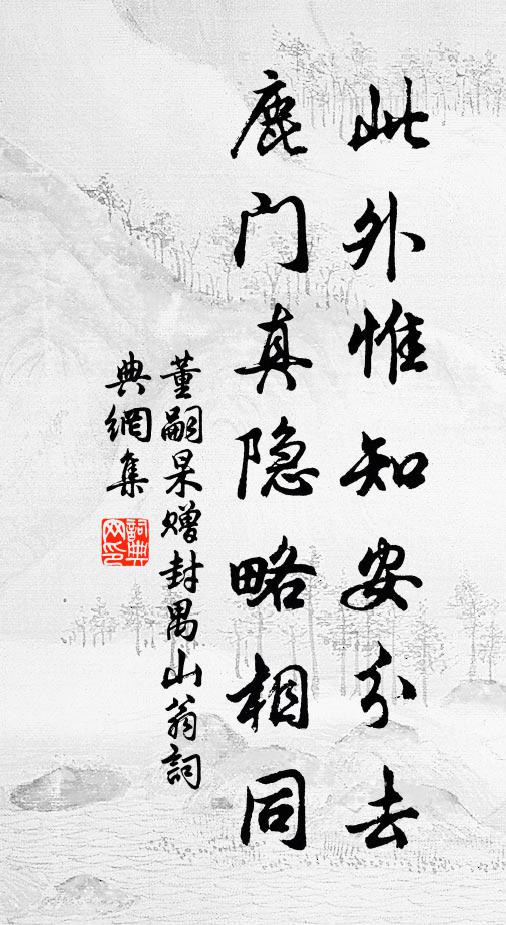 此外惟知安分去
鹿门真隐略相同
董嗣杲赠封禺山翁詞
典網集
詞典网印